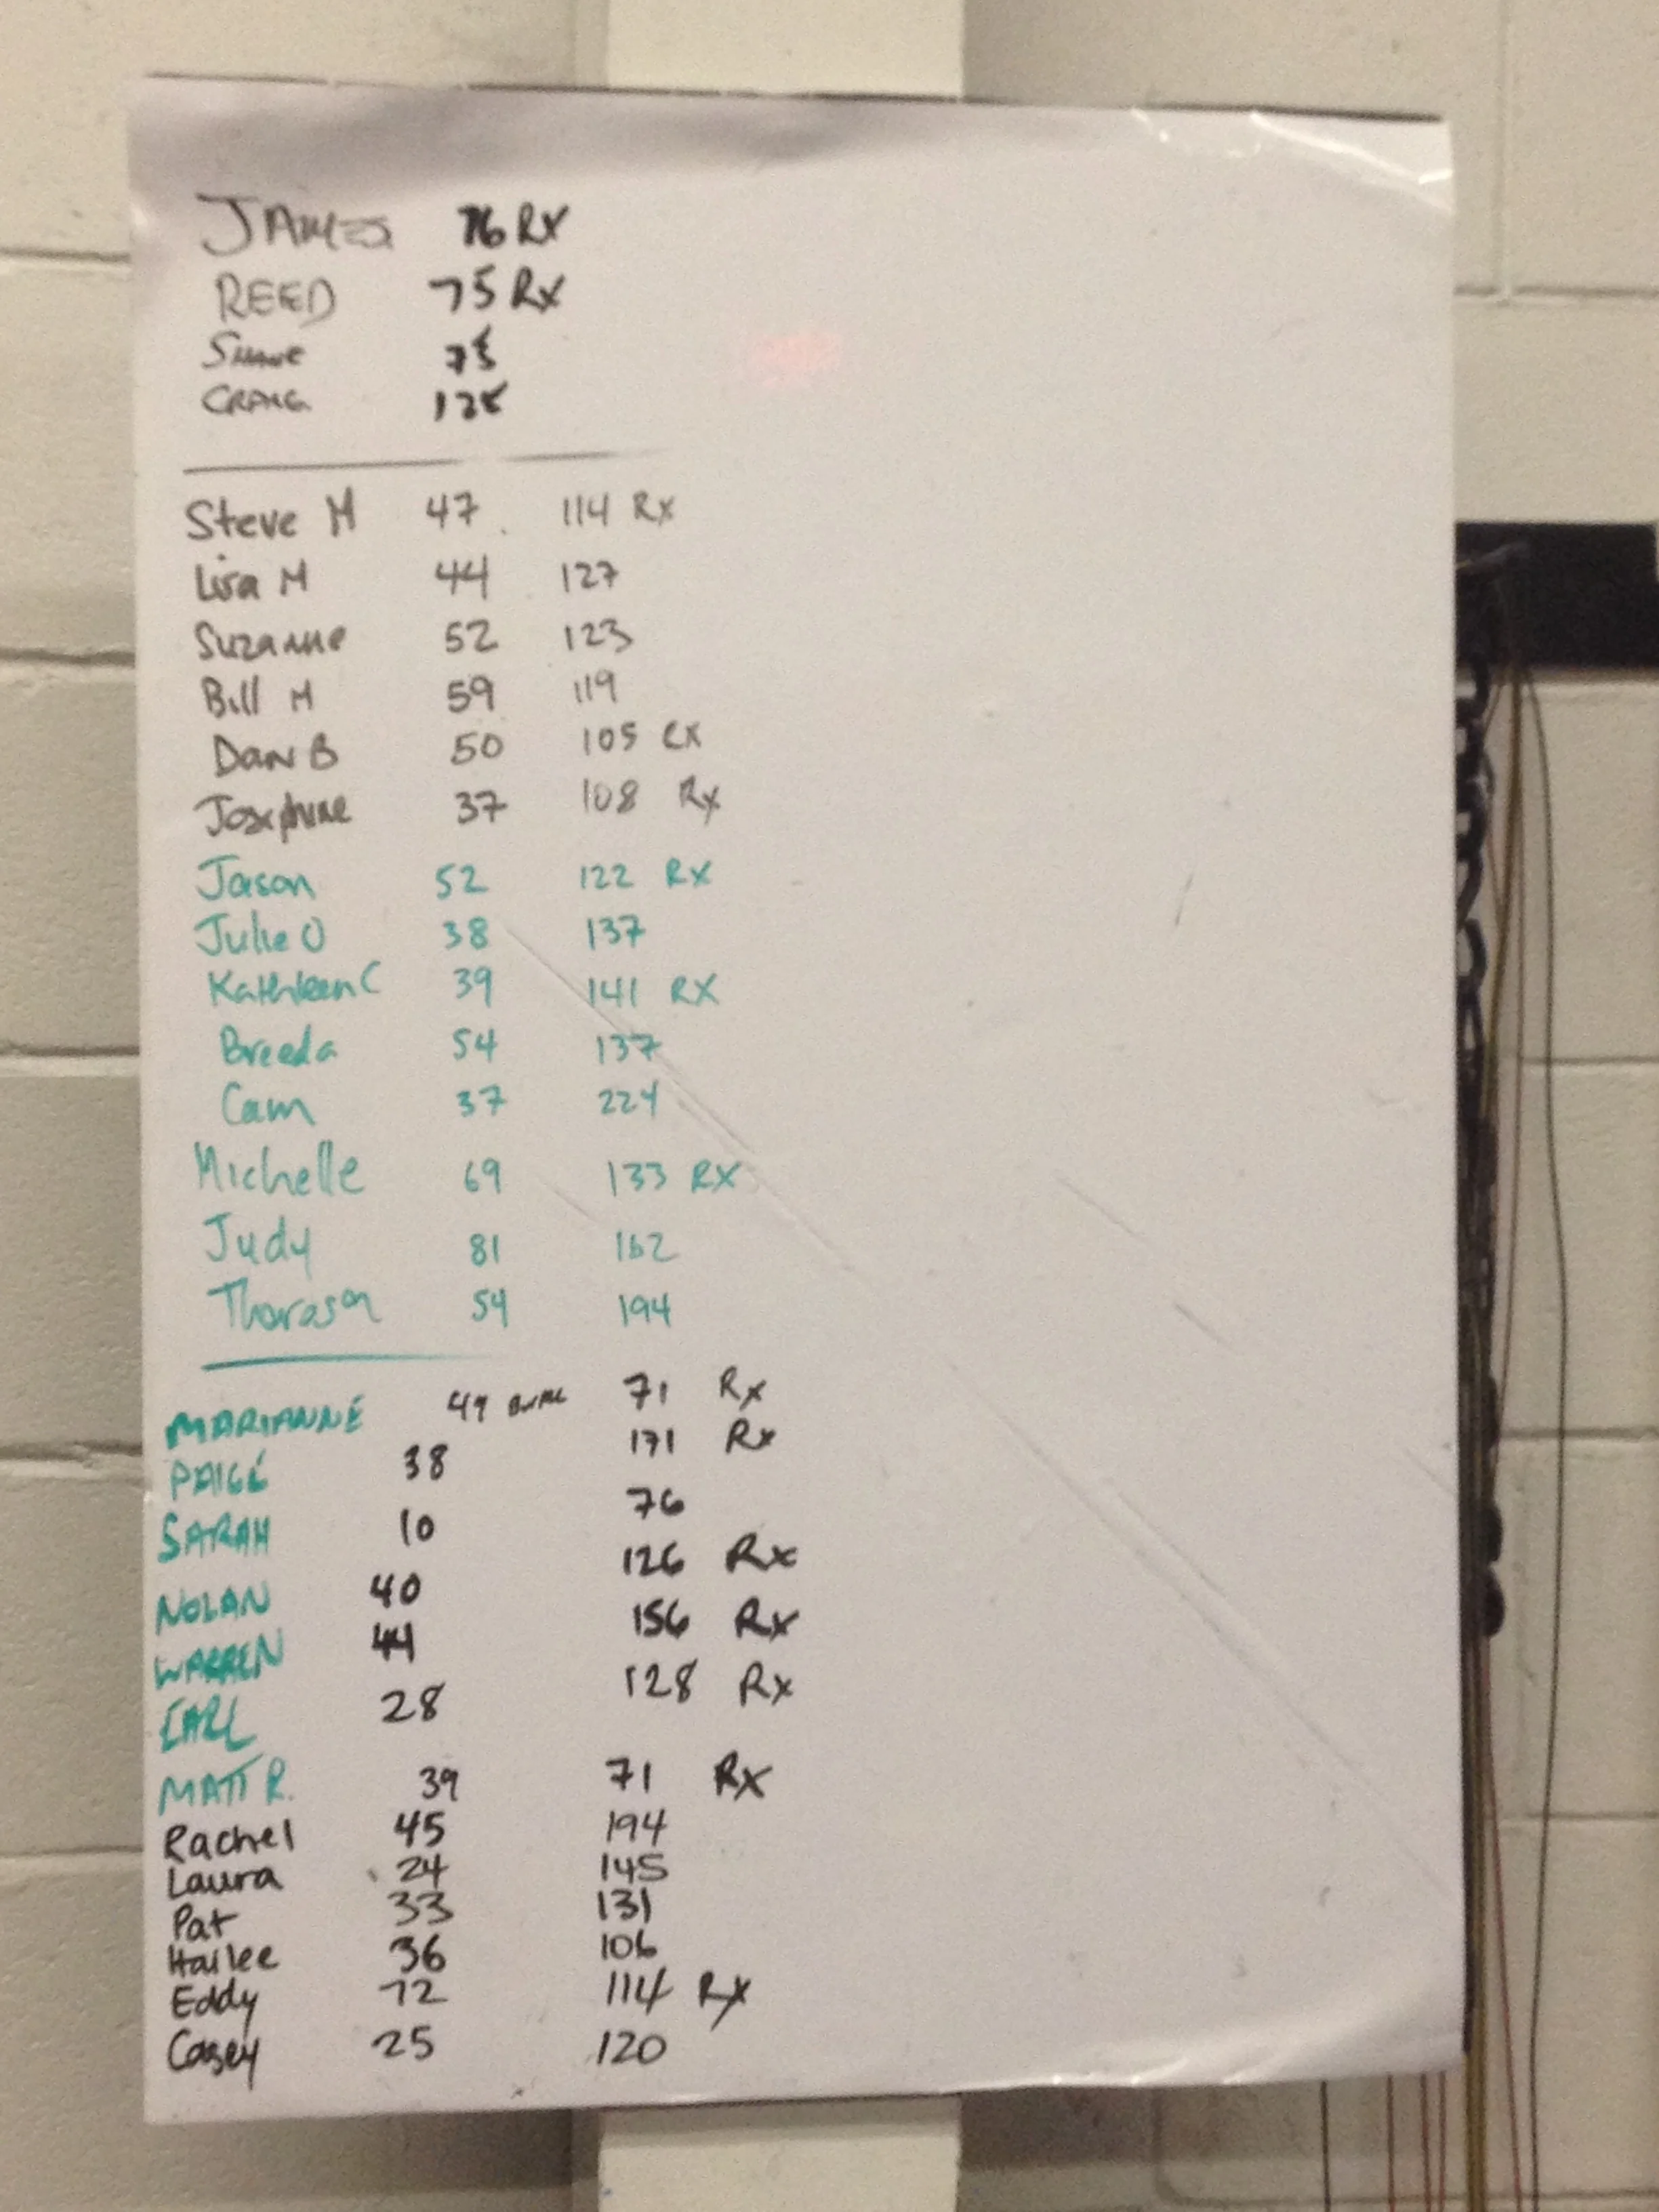 JAMES 76 RX
REED 75 RX
SHANE 75
CRAIG 128
Steve M 47 114 Rx
Lisa M 44 127
Suzanne 52 123
Bill M 59 119
DAN B 50 105 RX
Josephine 37 108 Rx
Jason 52 122 RX
Julie O 38 137
Kathleen C 39 141 RX
Breeda 54 137
Cam 37 224
Michelle 69 133 RX
Judy 81 162
Thorason 54 194
MARIANNE 49 71 Rx
PAIGE 38 171 Rx
SARAH 10 76
NOLAN 40 126 Rx
WARREN 44 156 Rx
EARL 28 128 Rx
MATT R. 39 71 Rx
Rachel 45 194
Laura 24 145
Pat 33 131
Hailee 36 106
Eddy 72 114 Rx
Casey 25 120